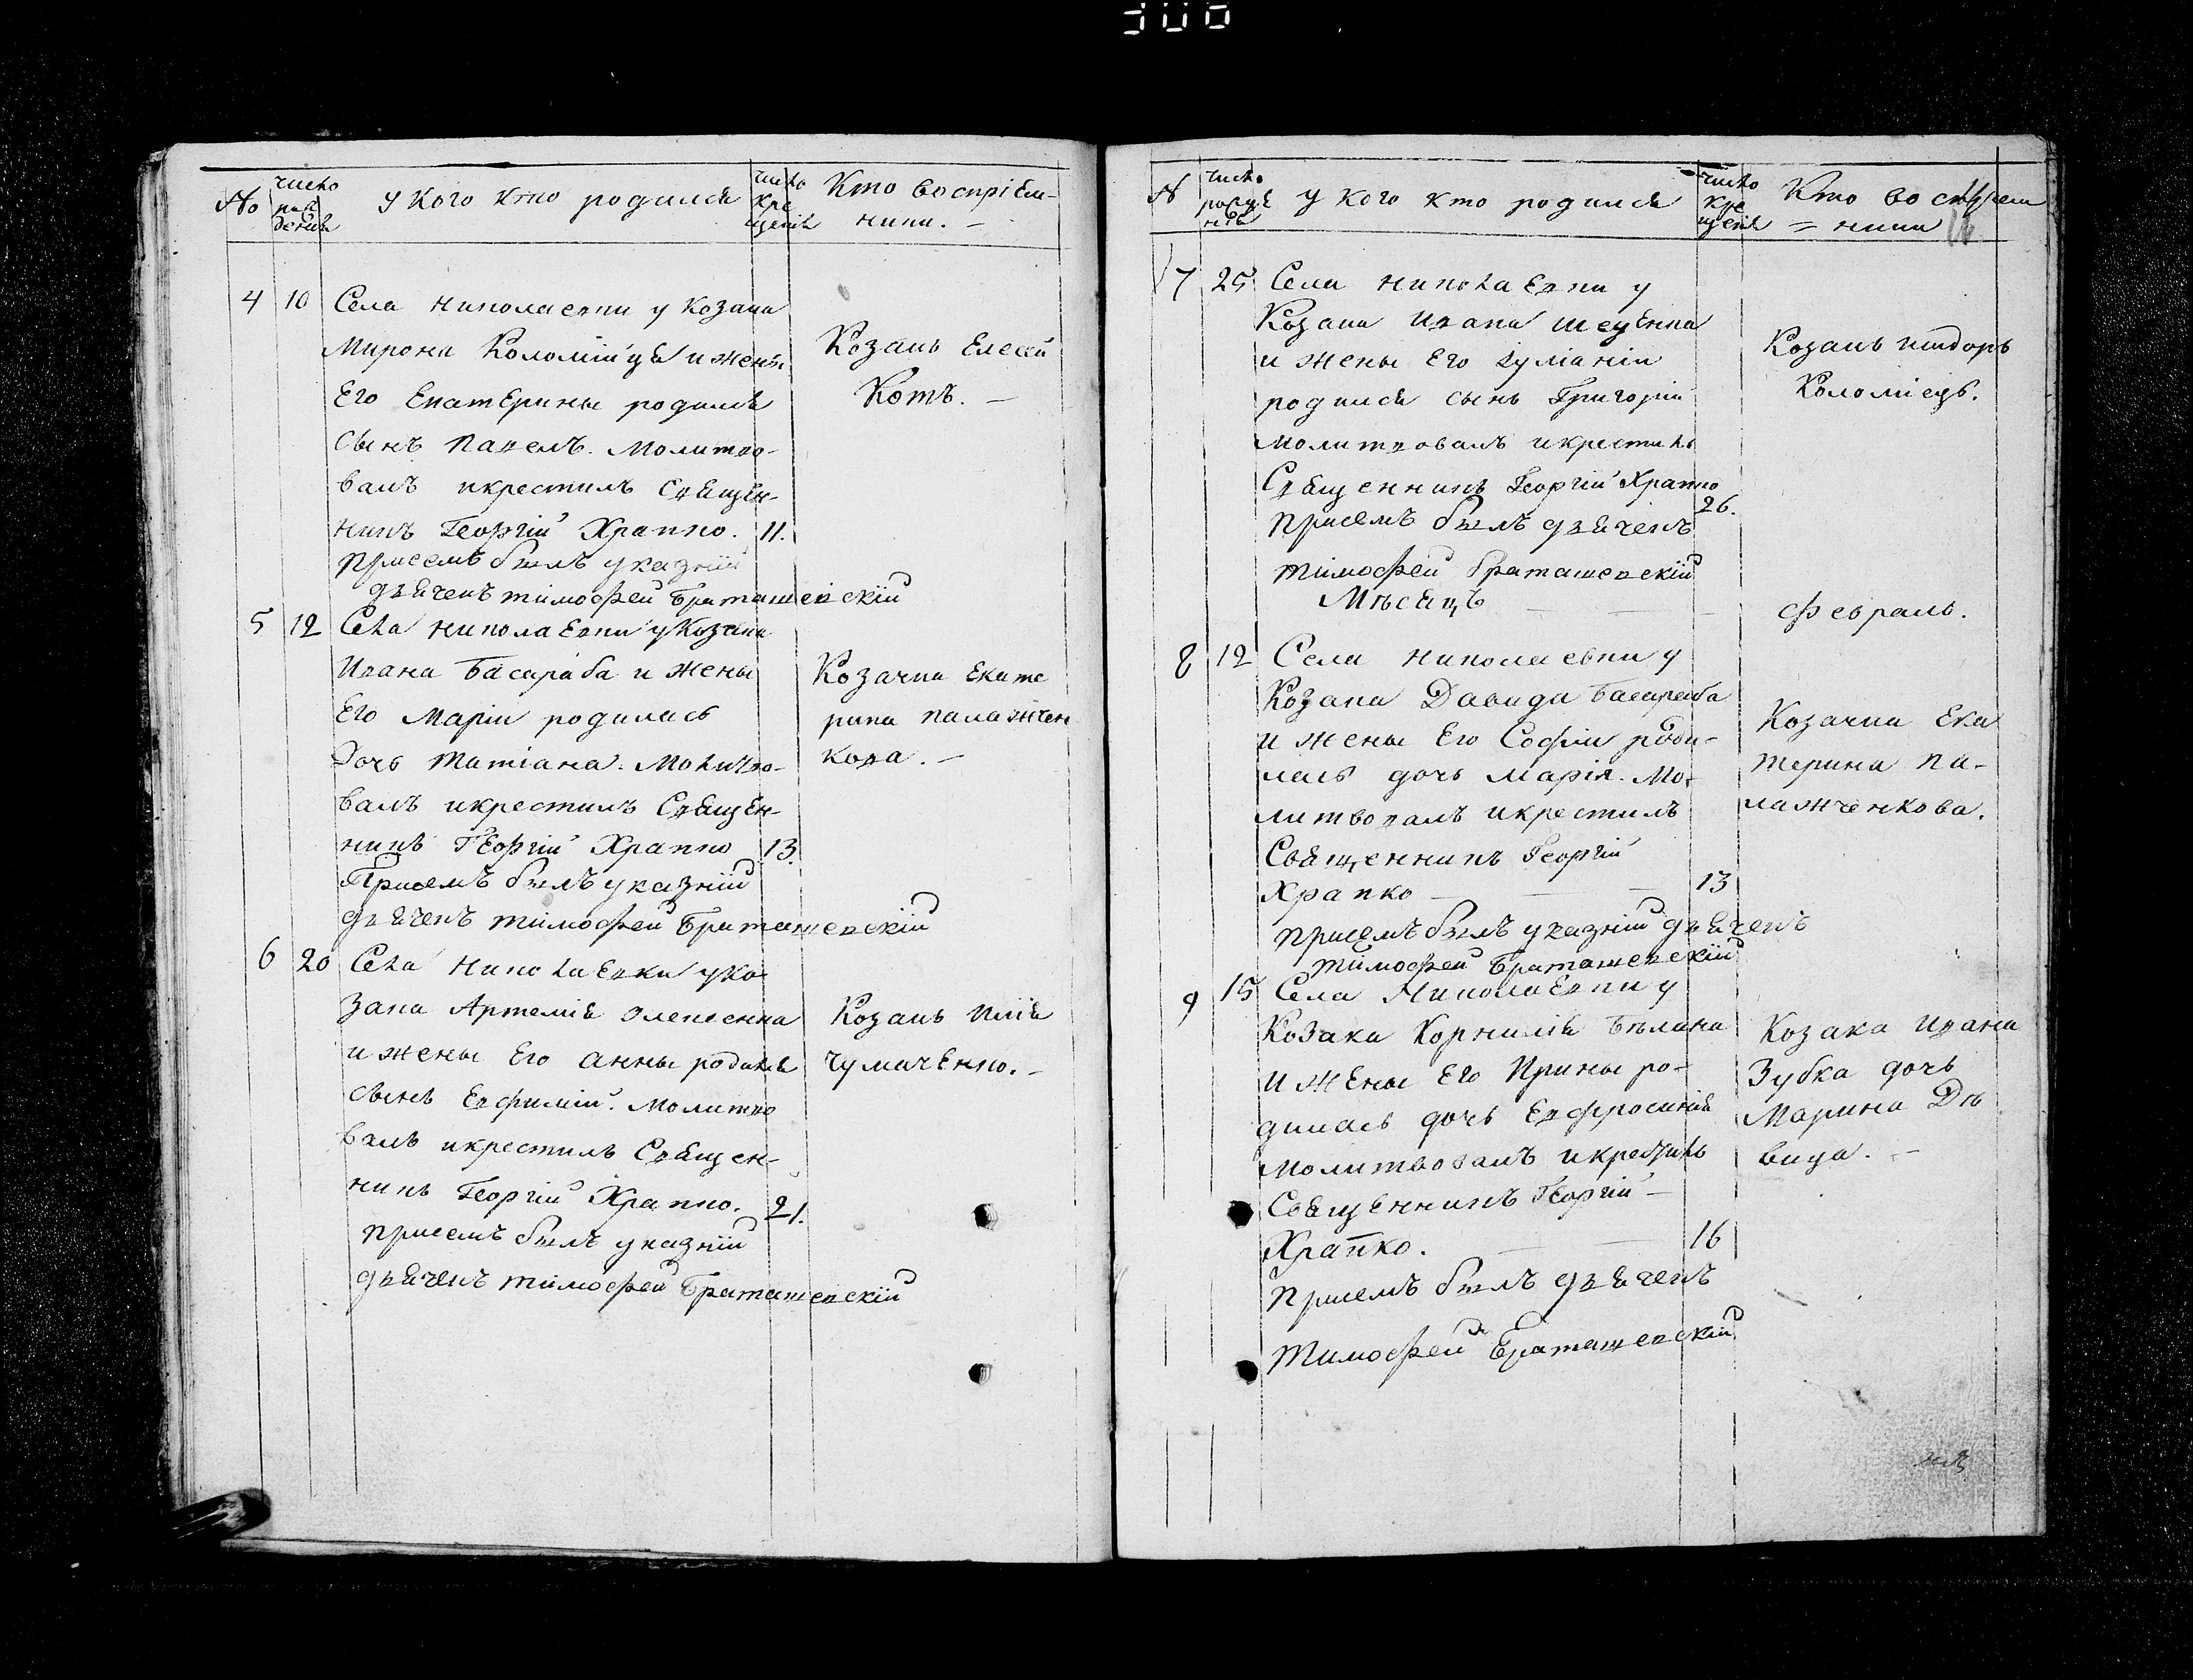 No
число рождения
у кого кто родился
число крещения
Кто воспріемники. –
4 10 Села николаевки у козака
Мирона Коломійця и жены
Его Екатерины родился
сынъ Павелъ. Молитво-
валъ и крестилъ Священ-
никъ Георгій Храпко. 11.
Присемъ былъ указній
дьяченъ тимофей Браташевскій
Козакъ Елесей
Котъ. –
5 12 Села николаевки у козака
Ивана Басараба и жены
Его Маріи родилась
дочь Татіана. Молитво-
валъ и крестилъ Священ-
никъ Георгій Храпко 13.
Присемъ былъ указній
дьяченъ тимофей Браташевскій
Козачка Екате
рина палажчен
кова. –
6 20 Села николаевки у ко
зака Артемія Олексенка
и жены Его анны родился
сынъ Евфимій. Молитво
валъ и крестилъ Священ-
никъ Георгій Храпко. 21.
присемъ былъ указній
дьяченъ тимофей Браташевскій
Козакъ Илія
чумаченко. –
N
число рожденія
у кого кто родился
число крещенія
Кто воспріем
= ники
7 25 Села николаевки у
Козака Ивана шевченка
и жены Его Іуліаніи
родился сынъ Григорій
молитвовалъ и крестилъ
Священникъ Георгій Храпко
26.
присемъ былъ дьяченъ
тимофей Браташевскій
Козакъ исидоръ
Коломіецъ.
Мѣсяцъ — — — февраль.
8 12 Села николаевки у
Козака Давида Басараба
и жены Его Софіи роди-
лась дочь Марія. Мо-
литвовалъ и крестилъ
Священникъ Георгій
Храпко — — 13
присемъ былъ указній дьяченъ
тимофей Браташевскій
Козачка Ека
терина па-
лажченкова.
9 15 Села Николаевки у
Козака Корнилія Бѣлана
и жены Его Ирины ро-
дилась дочь Евфросинія
молитвовалъ и крестилъ
Священникъ Георгій –
Храпко. — — 16
присемъ былъ дьяченъ
Тимофей Браташевскій
Козака ивана
Зубка дочь
Марина Дѣ
вица. –